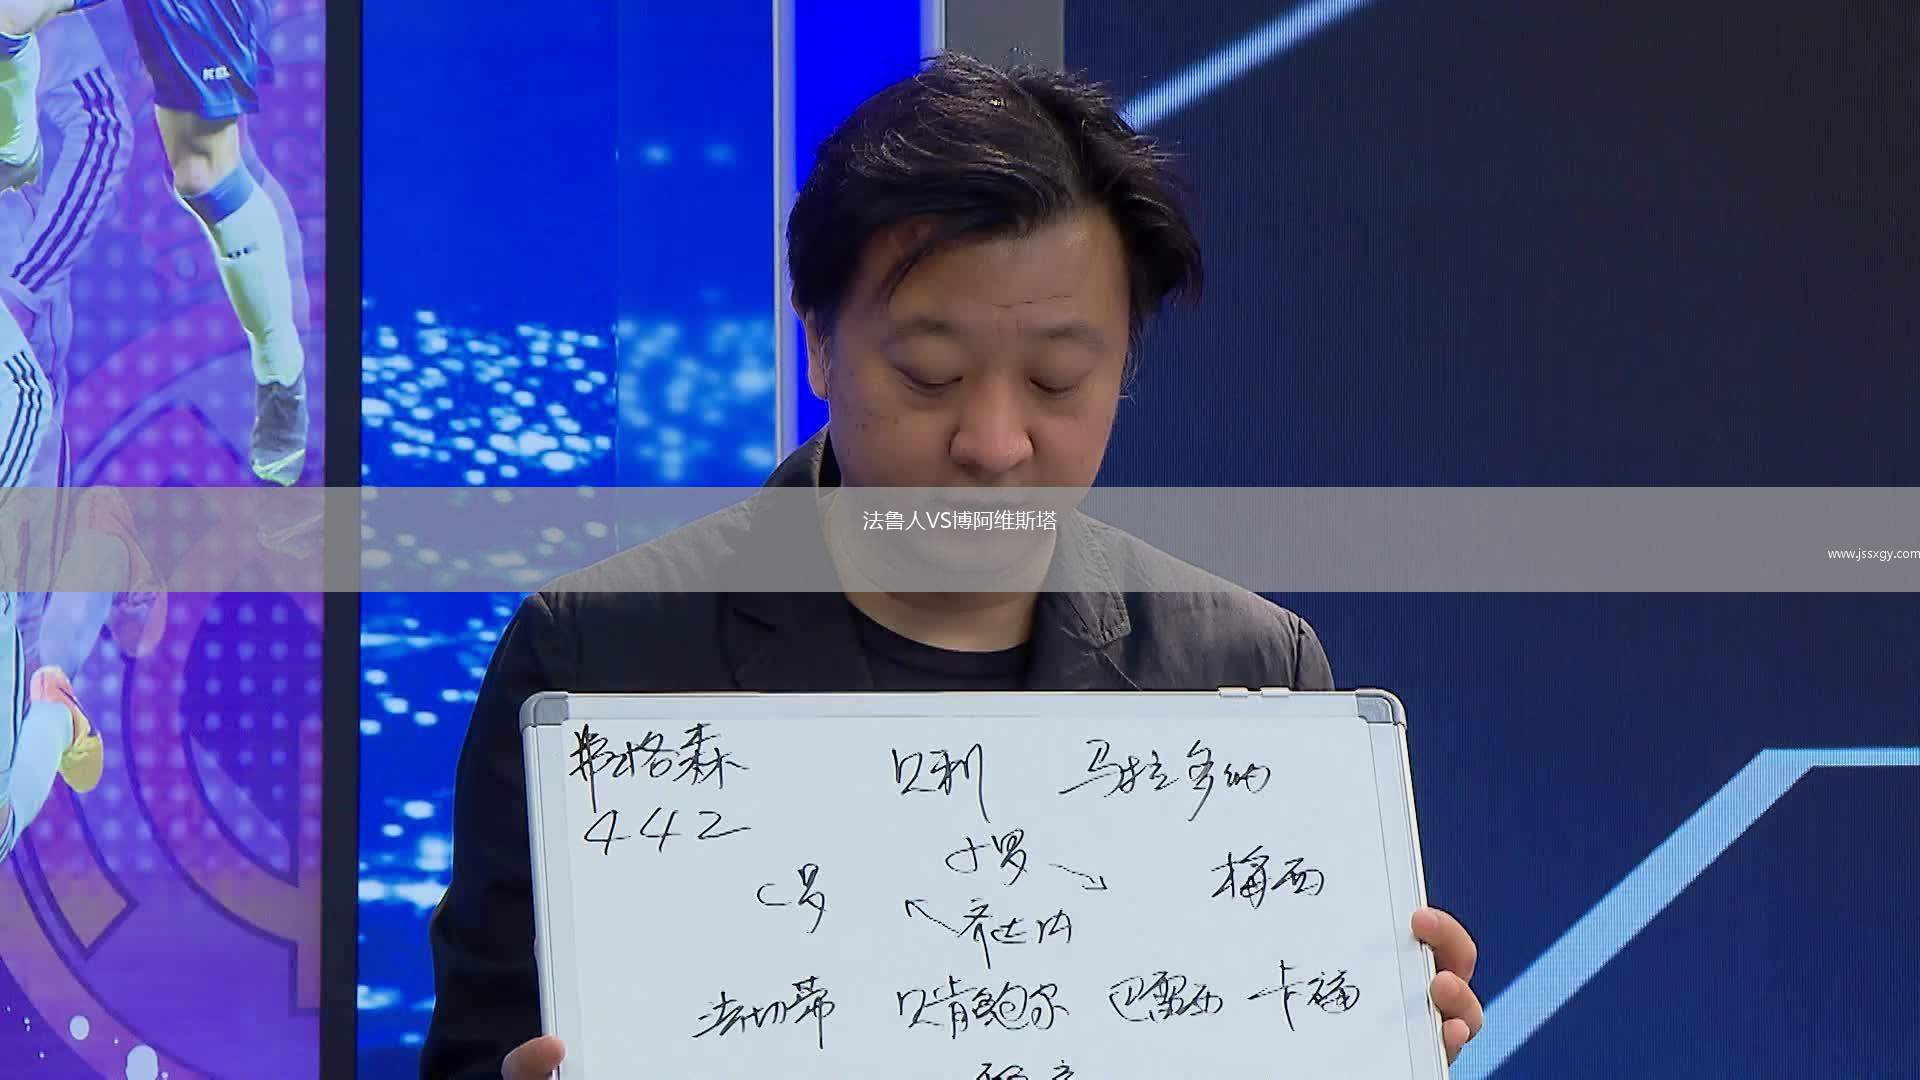 法鲁人VS博阿维斯塔
www.jssxgy.com
弗格森 贝利 马拉多纳
442
小罗
C罗 梅西
齐达内
法切蒂 贝肯鲍尔 巴雷西 卡福